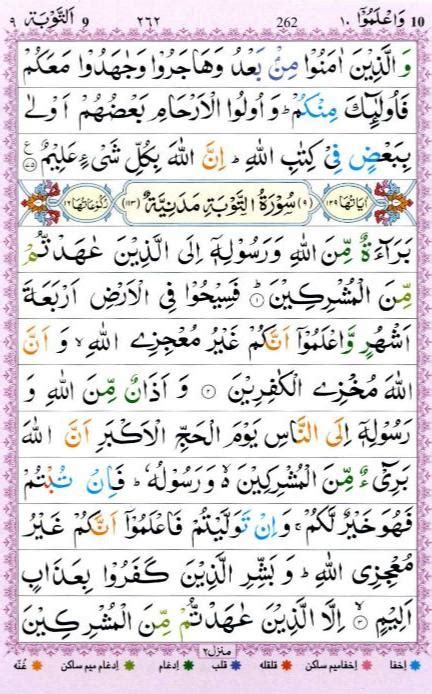 10 وَاعْلَمُوْٓا ١٠ 262 ٢٦٢ 9 اَلتَّوْبَة ٩
وَ الَّذِيْنَ اٰمَنُوْا مِنْۢ بَعْدُ وَهَاجَرُوْا وَجٰهَدُوْا مَعَكُمْ
فَاُولٰٓئِكَ مِنْكُمْ ؕ وَ اُولُوا الْاَرْحَامِ بَعْضُهُمْ اَوْلٰى
بِبَعْضٍ فِيْ كِتٰبِ اللّٰهِ ؕ اِنَّ اللّٰهَ بِكُلِّ شَيْءٍ عَلِيْمٌ ۝٧٥ ع
اٰيَاتُهَا ١٢٩ (٩) سُوْرَةُ التَّوْبَةِ مَدَنِيَّةٌ (١١٣) رُكُوْعَاتُهَا ١٦
بَرَآءَةٌ مِّنَ اللّٰهِ وَرَسُوْلِهٖٓ اِلَى الَّذِيْنَ عٰهَدْتُّمْ
مِّنَ الْمُشْرِكِيْنَ ؕ ۝١ فَسِيْحُوْا فِي الْاَرْضِ اَرْبَعَةَ
اَشْهُرٍ وَّاعْلَمُوْٓا اَنَّكُمْ غَيْرُ مُعْجِزِي اللّٰهِ ۙ وَ اَنَّ
اللّٰهَ مُخْزِي الْكٰفِرِيْنَ ۝٢ وَ اَذَانٌ مِّنَ اللّٰهِ وَ
رَسُوْلِهٖٓ اِلَى النَّاسِ يَوْمَ الْحَجِّ الْاَكْبَرِ اَنَّ اللّٰهَ
بَرِيْٓءٌ مِّنَ الْمُشْرِكِيْنَ ۙ وَ رَسُوْلُهٗ ؕ فَاِنْ تُبْتُمْ
فَهُوَ خَيْرٌ لَّكُمْ ۚ وَ اِنْ تَوَلَّيْتُمْ فَاعْلَمُوْٓا اَنَّكُمْ غَيْرُ
مُعْجِزِي اللّٰهِ ؕ وَ بَشِّرِ الَّذِيْنَ كَفَرُوْا بِعَذَابٍ
اَلِيْمٍ ۙ ۝٣ اِلَّا الَّذِيْنَ عٰهَدْتُّمْ مِّنَ الْمُشْرِكِيْنَ
منزل٢
اخفا اخفامیم ساکن قلقله قلب ادغام ادغام میم ساکن غُنَّه